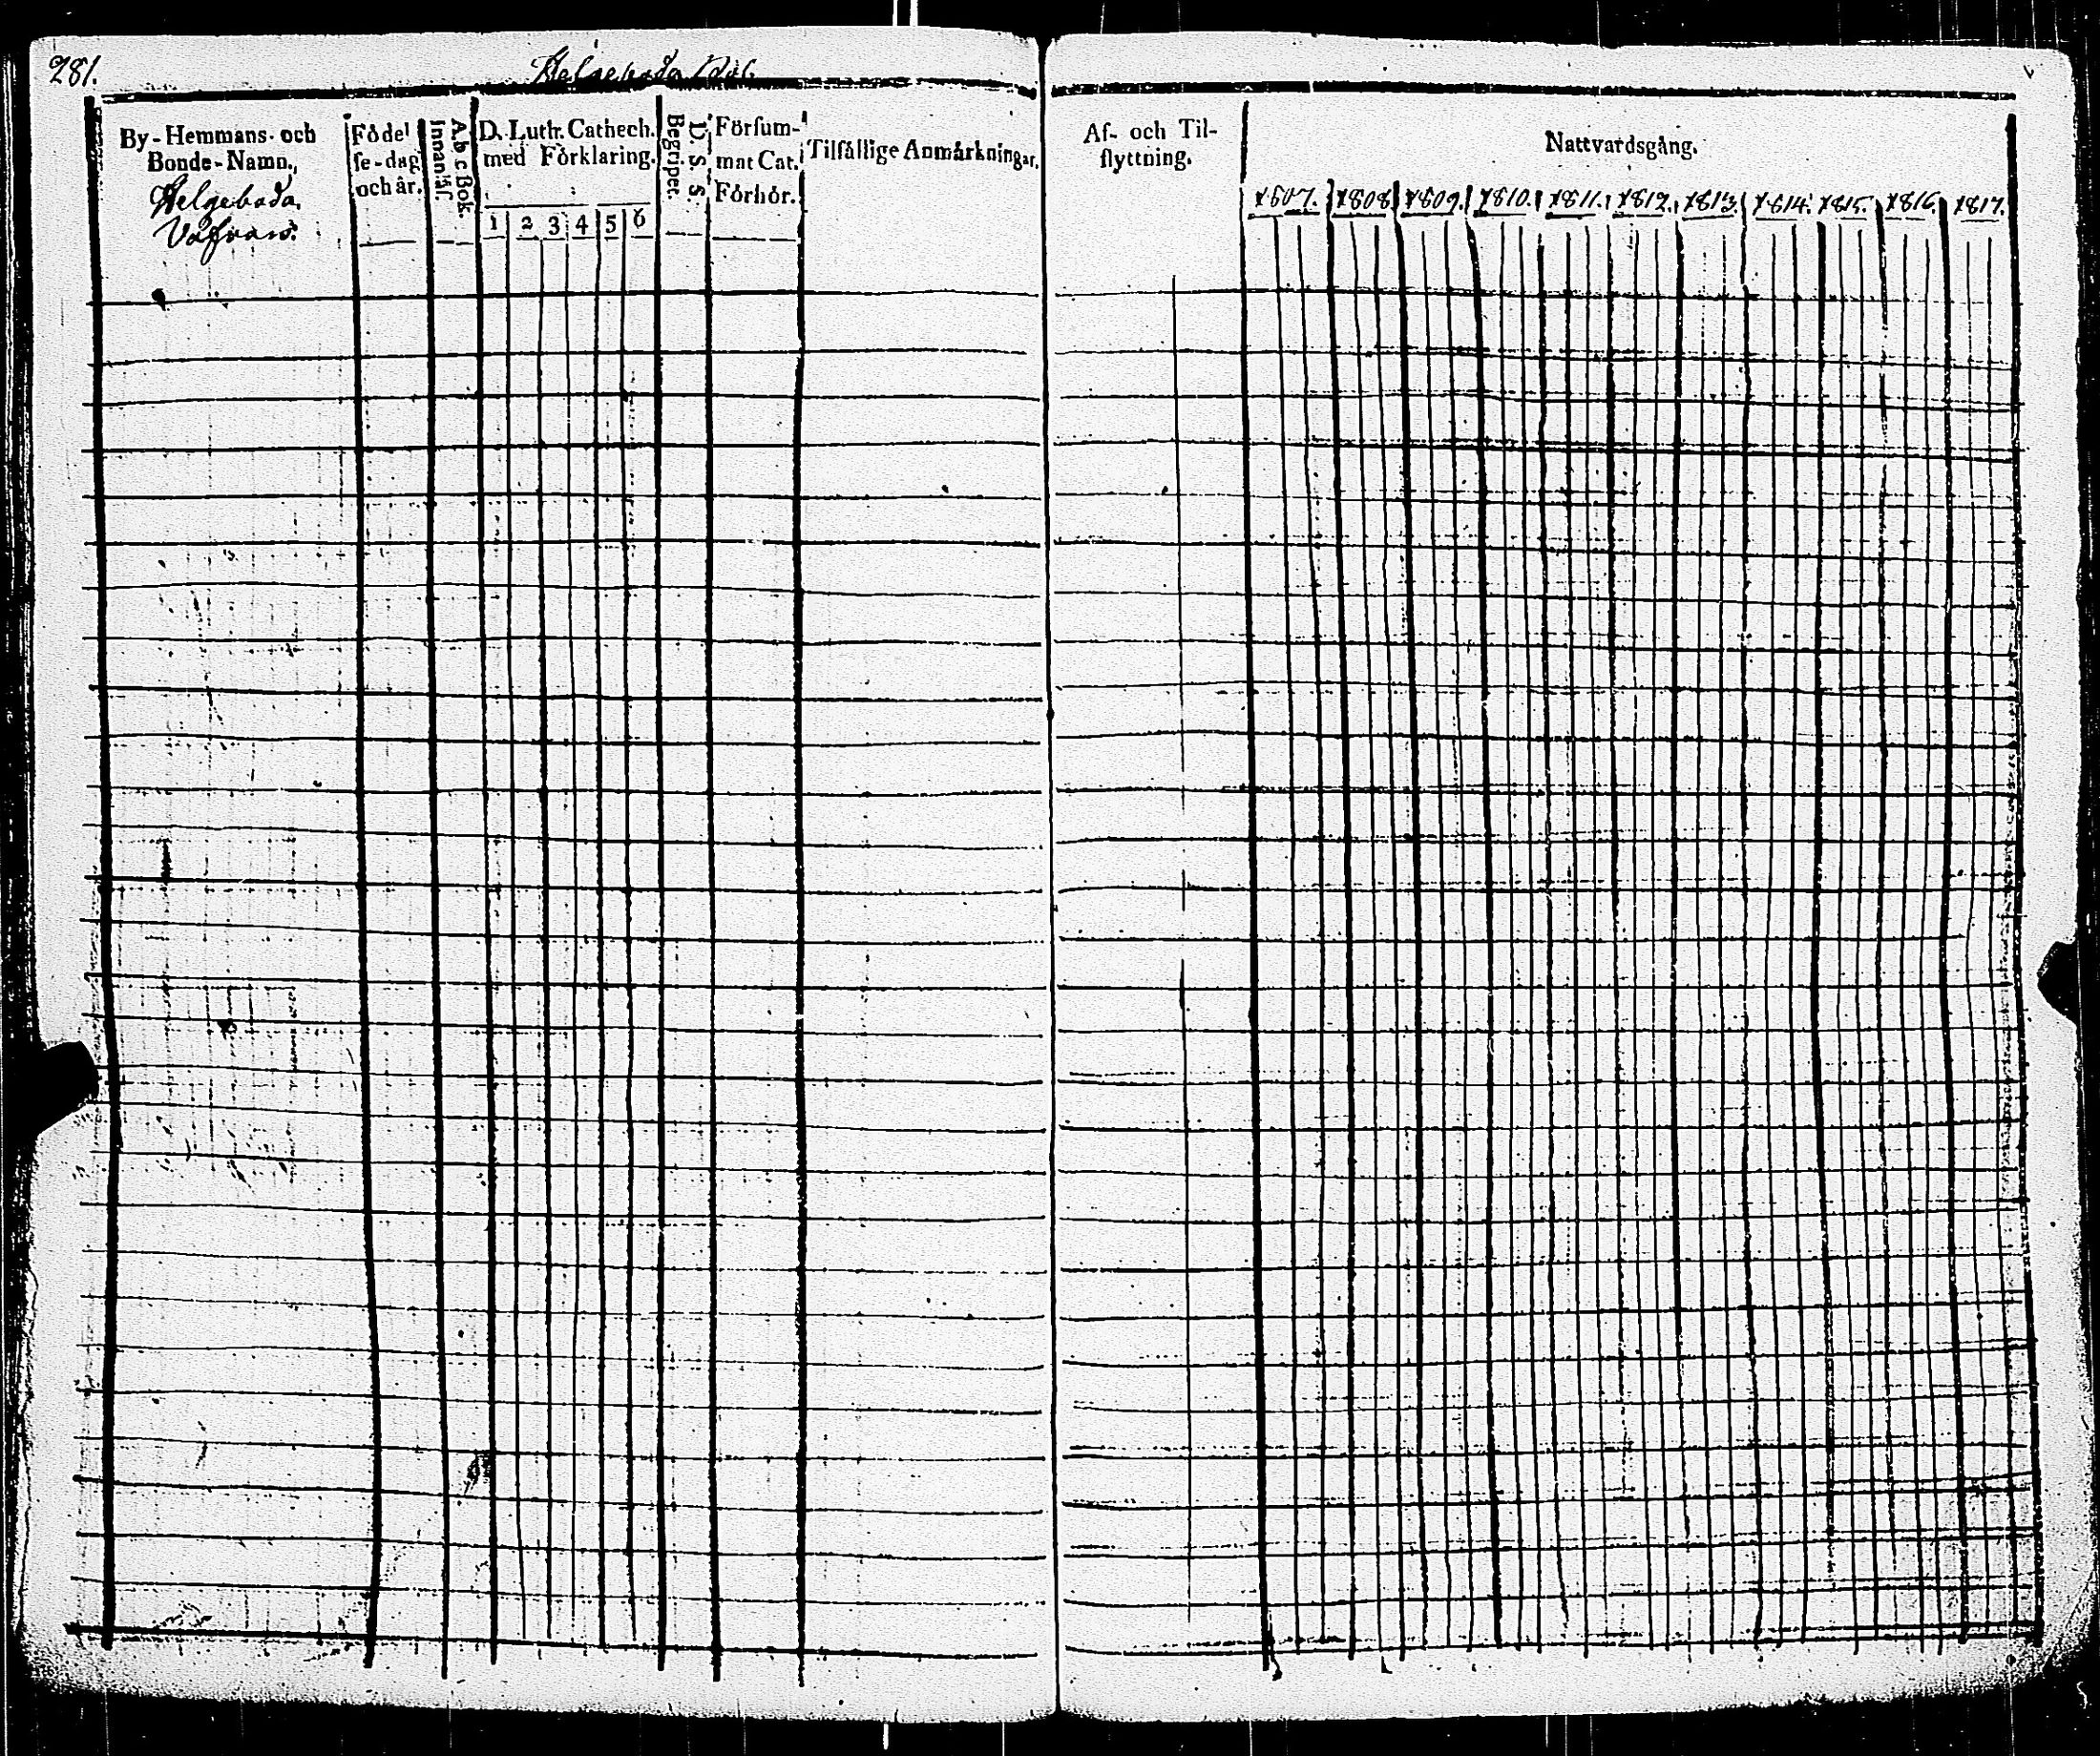 281.
Helgeboda
By-Hemmans- och
Bonde-Namn.
Helgeboda
Födel
se-dag
och år.
A.b c Bok.
Innanläs.
D. Luth. Cathech.
med Förklaring.
1 2 3 4 5 6
D. S. S.
Begripet.
Försum-
mat Cat.
Förhör.
Tilfällige Anmärkningar.
Af- och Til-
flyttning.
Nattvardsgång.
1807. 1808 1809. 1810. 1811. 1812. 1813. 1814. 1815. 1816. 1817.